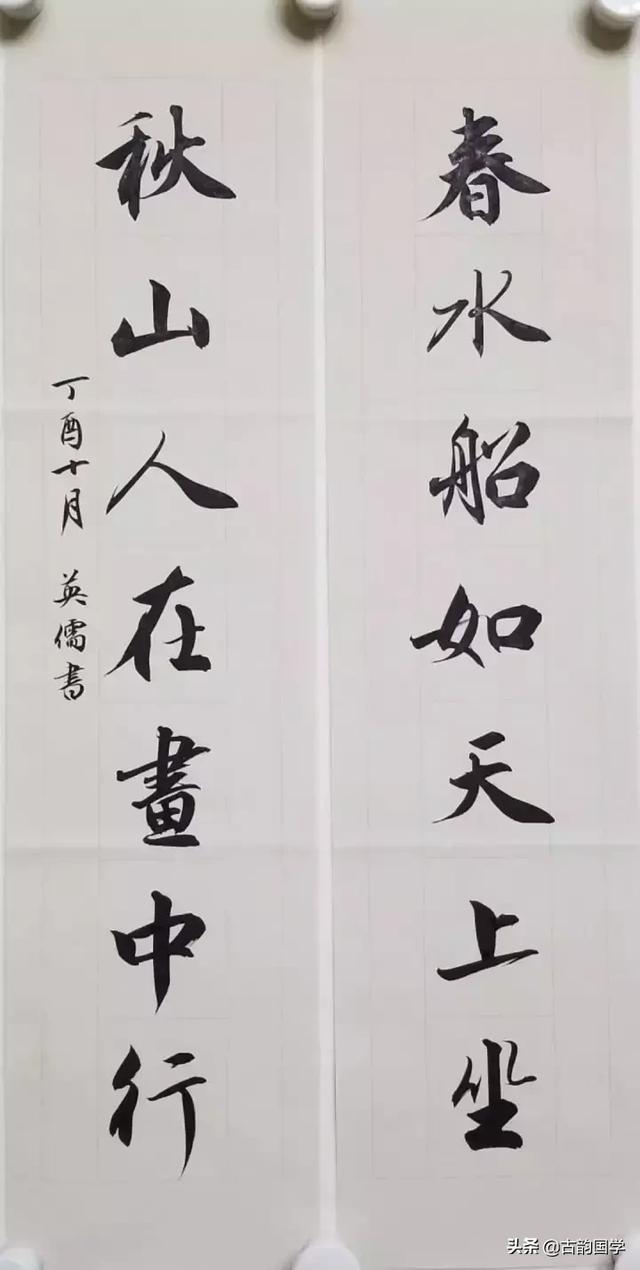 春水船如天上坐
秋山人在畫中行
丁酉十月 英儒書
头条 @古韵国学